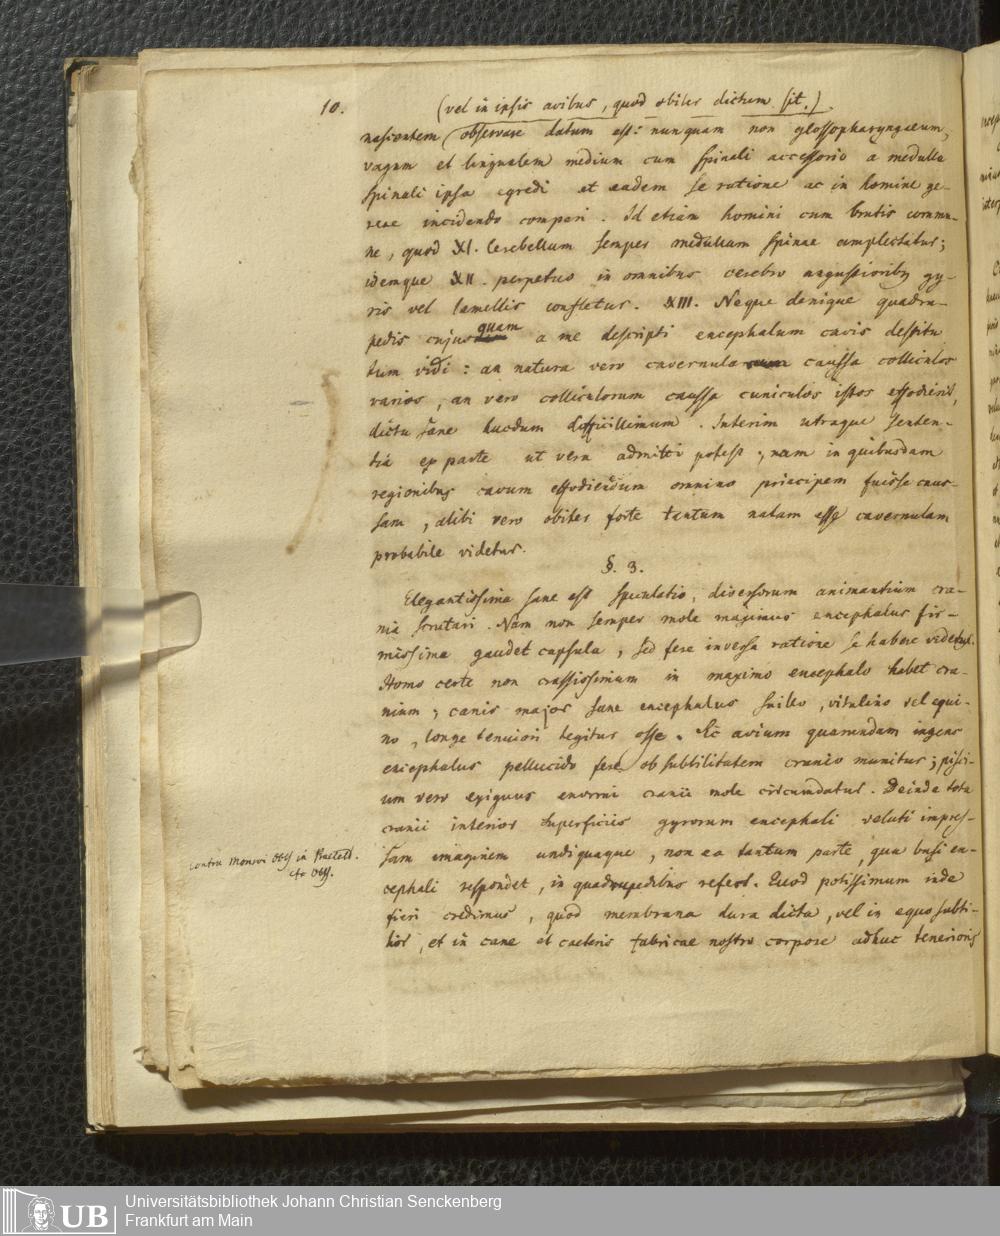 10.
(vel in ipsis avibus, quod obiter dictum sit.)
nascentem observare datum est: nunquam non glossopharyngaeum,
vagum et lingualem medium cum spinali accessorio a medulla
spinali ipsa egredi et eadem se ratione ac in homine ge-
rere incidendo comperi. Id etiam homini cum brutis commu-
ne, quod XI. Cerebellum semper medullam spinae amplectatur;
idemque XII. perpetuo in omnibus cerebro angustioribus gy-
ris vel lamellis confletur. XIII. Neque denique quadru-
pedis cujusquam a me descripti encephalum cavis destitu
tum vidi: an natura vero cavernularum caussa colliculos
varios, an vero colliculorum caussa cuniculos istos effoderit,
dictu sane haudum difficillimum. Interim utraque senten-
tia ex parte ut vera admitti potest, nam in quibusdam
regionibus cavum effodiendum omnino principem fuisse caus-
sam, alibi vero obiter forte tantum natam esse cavernulam
probabile videtur.
§. 3.
Elegantissima sane est speculatio, diversorum animantium cra-
nia scrutari. Nam non semper mole maximus encephalus fir-
missima gaudet capsula, sed fere inversa ratione se habere videtur.
Homo certe non crassissimum in maximo encephalo habet cra-
nium; canis major sane encephalus suillo, vitulino vel equi-
no, longe tenuiori tegitur osse. Et avium quarundam ingens
encephalus pellucido fere ob subtilitatem cranio munitur; pisci-
um vero exiguus enormi cranii mole circumdatur. Deinde tota
cranii interior superficies gyrorum encephali veluti impres-
sam imaginem undiquaque, non ea tantum parte, qua basi en-
cephali respondet, in quadrupedibus refert. Quod potissimum inde
fieri credimus, quod membrana dura dicta, vel in equo subti-
lior, et in cane et caeteris fabricae nostro corpore adhuc tenerioris
contra Monroi Obs in
Obs.
Universitätsbibliothek Johann Christian Senckenberg
Frankfurt am Main
UB